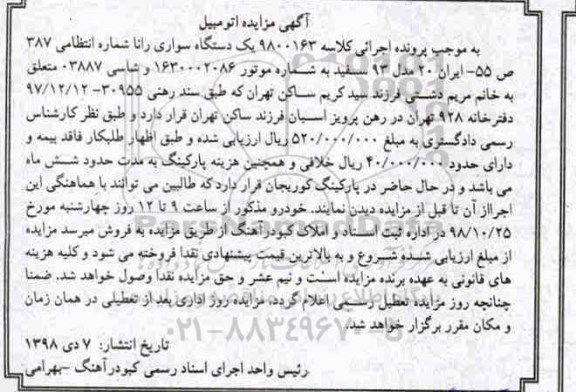 آگهی مزایده اتومبیل
به موجب پرونده اجرائی کلاسه ۹۸۰۰۱۶۳ یک دستگاه سواری رانا شماره انتظامی ۳۸۷
ص ۵۵- ایران ۲۰ مدل ۹۳ سفید به شماره موتور ۱۶۳۰۰۰۲۰۸۶ و شاسی ۰۳۸۸۷ متعلق
به خانم مریم دشتی فرزند سید کریم ساکن تهران که طبق سند رهنی ۳۰۹۵۵- ۹۷/۱۲/۱۲
دفترخانه ۹۲۸ تهران در رهن پرویز اسبان فرزند ساکن تهران قرار دارد و طبق نظر کارشناس
رسمی دادگستری به مبلغ ۵۲۰/۰۰۰/۰۰۰ ریال ارزیابی شده و طبق اظهار طلبکار فاقد بیمه و
دارای حدود ۴۰/۰۰۰/۰۰۰ ریال خلافی و همچنین هزینه پارکینگ به مدت حدود شش ماه
می باشد و در حال حاضر در پارکینگ کوریجان قرار دارد که طالبین می توانند با هماهنگی این
اجرااز آن تا قبل از مزایده دیدن نمایند. خودرو مذکور از ساعت ۹ تا ۱۲ روز چهارشنبه مورخ
۹۸/۱۰/۲۵ در اداره ثبت اسناد و املاک کبودرآهنگ از طریق مزایده به فروش میرسد مزایده
از مبلغ ارزیابی شده شروع و به بالاترین قیمت پیشنهادی نقدا فروخته می شود و کلیه هزینه
های قانونی به عهده برنده مزایده است و نیم عشر و حق مزایده نقدا وصول خواهد شد. ضمنا
چنانچه روز مزایده تعطیل رسمی اعلام گردد، مزایده روز اداری بعد از تعطیلی در همان زمان
و مکان مقرر برگزار خواهد شد.
۰۲۱-۸۸۳۴۹۶۷۰-۵
تاریخ انتشار: ۷ دی ۱۳۹۸
رئیس واحد اجرای اسناد رسمی کبودرآهنگ -بهرامی